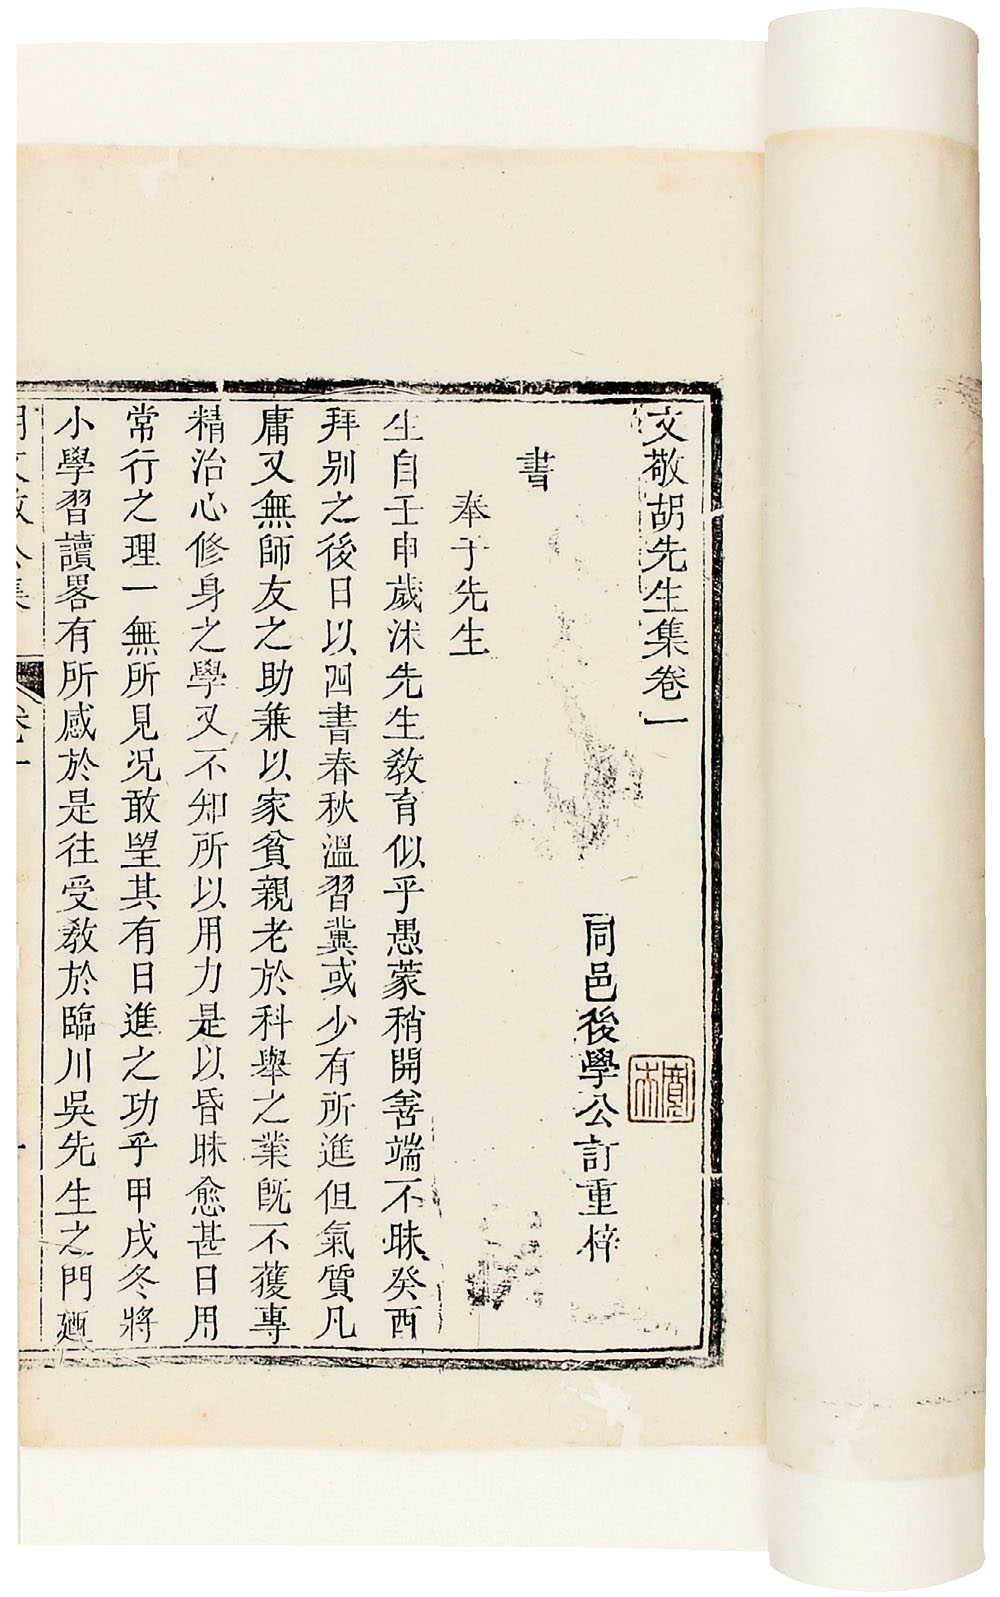 文敬胡先生集卷一
同邑後學公訂重梓
書
奉于先生
生自壬申歲沐先生教育似乎愚蒙稍開善端不昧癸酉
拜别之後日以四書春秋溫習冀或少有所進但氣質凡
庸又無師友之助兼以家貧親老於科舉之業既不獲專
精治心修身之學又不知所以用力是以昏昧愈甚日用
常行之理一無所見况敢望其有日進之功乎甲戌冬將
小學習讀畧有所感於是往受教於臨川吳先生之門
胡文敬公集 卷一 一